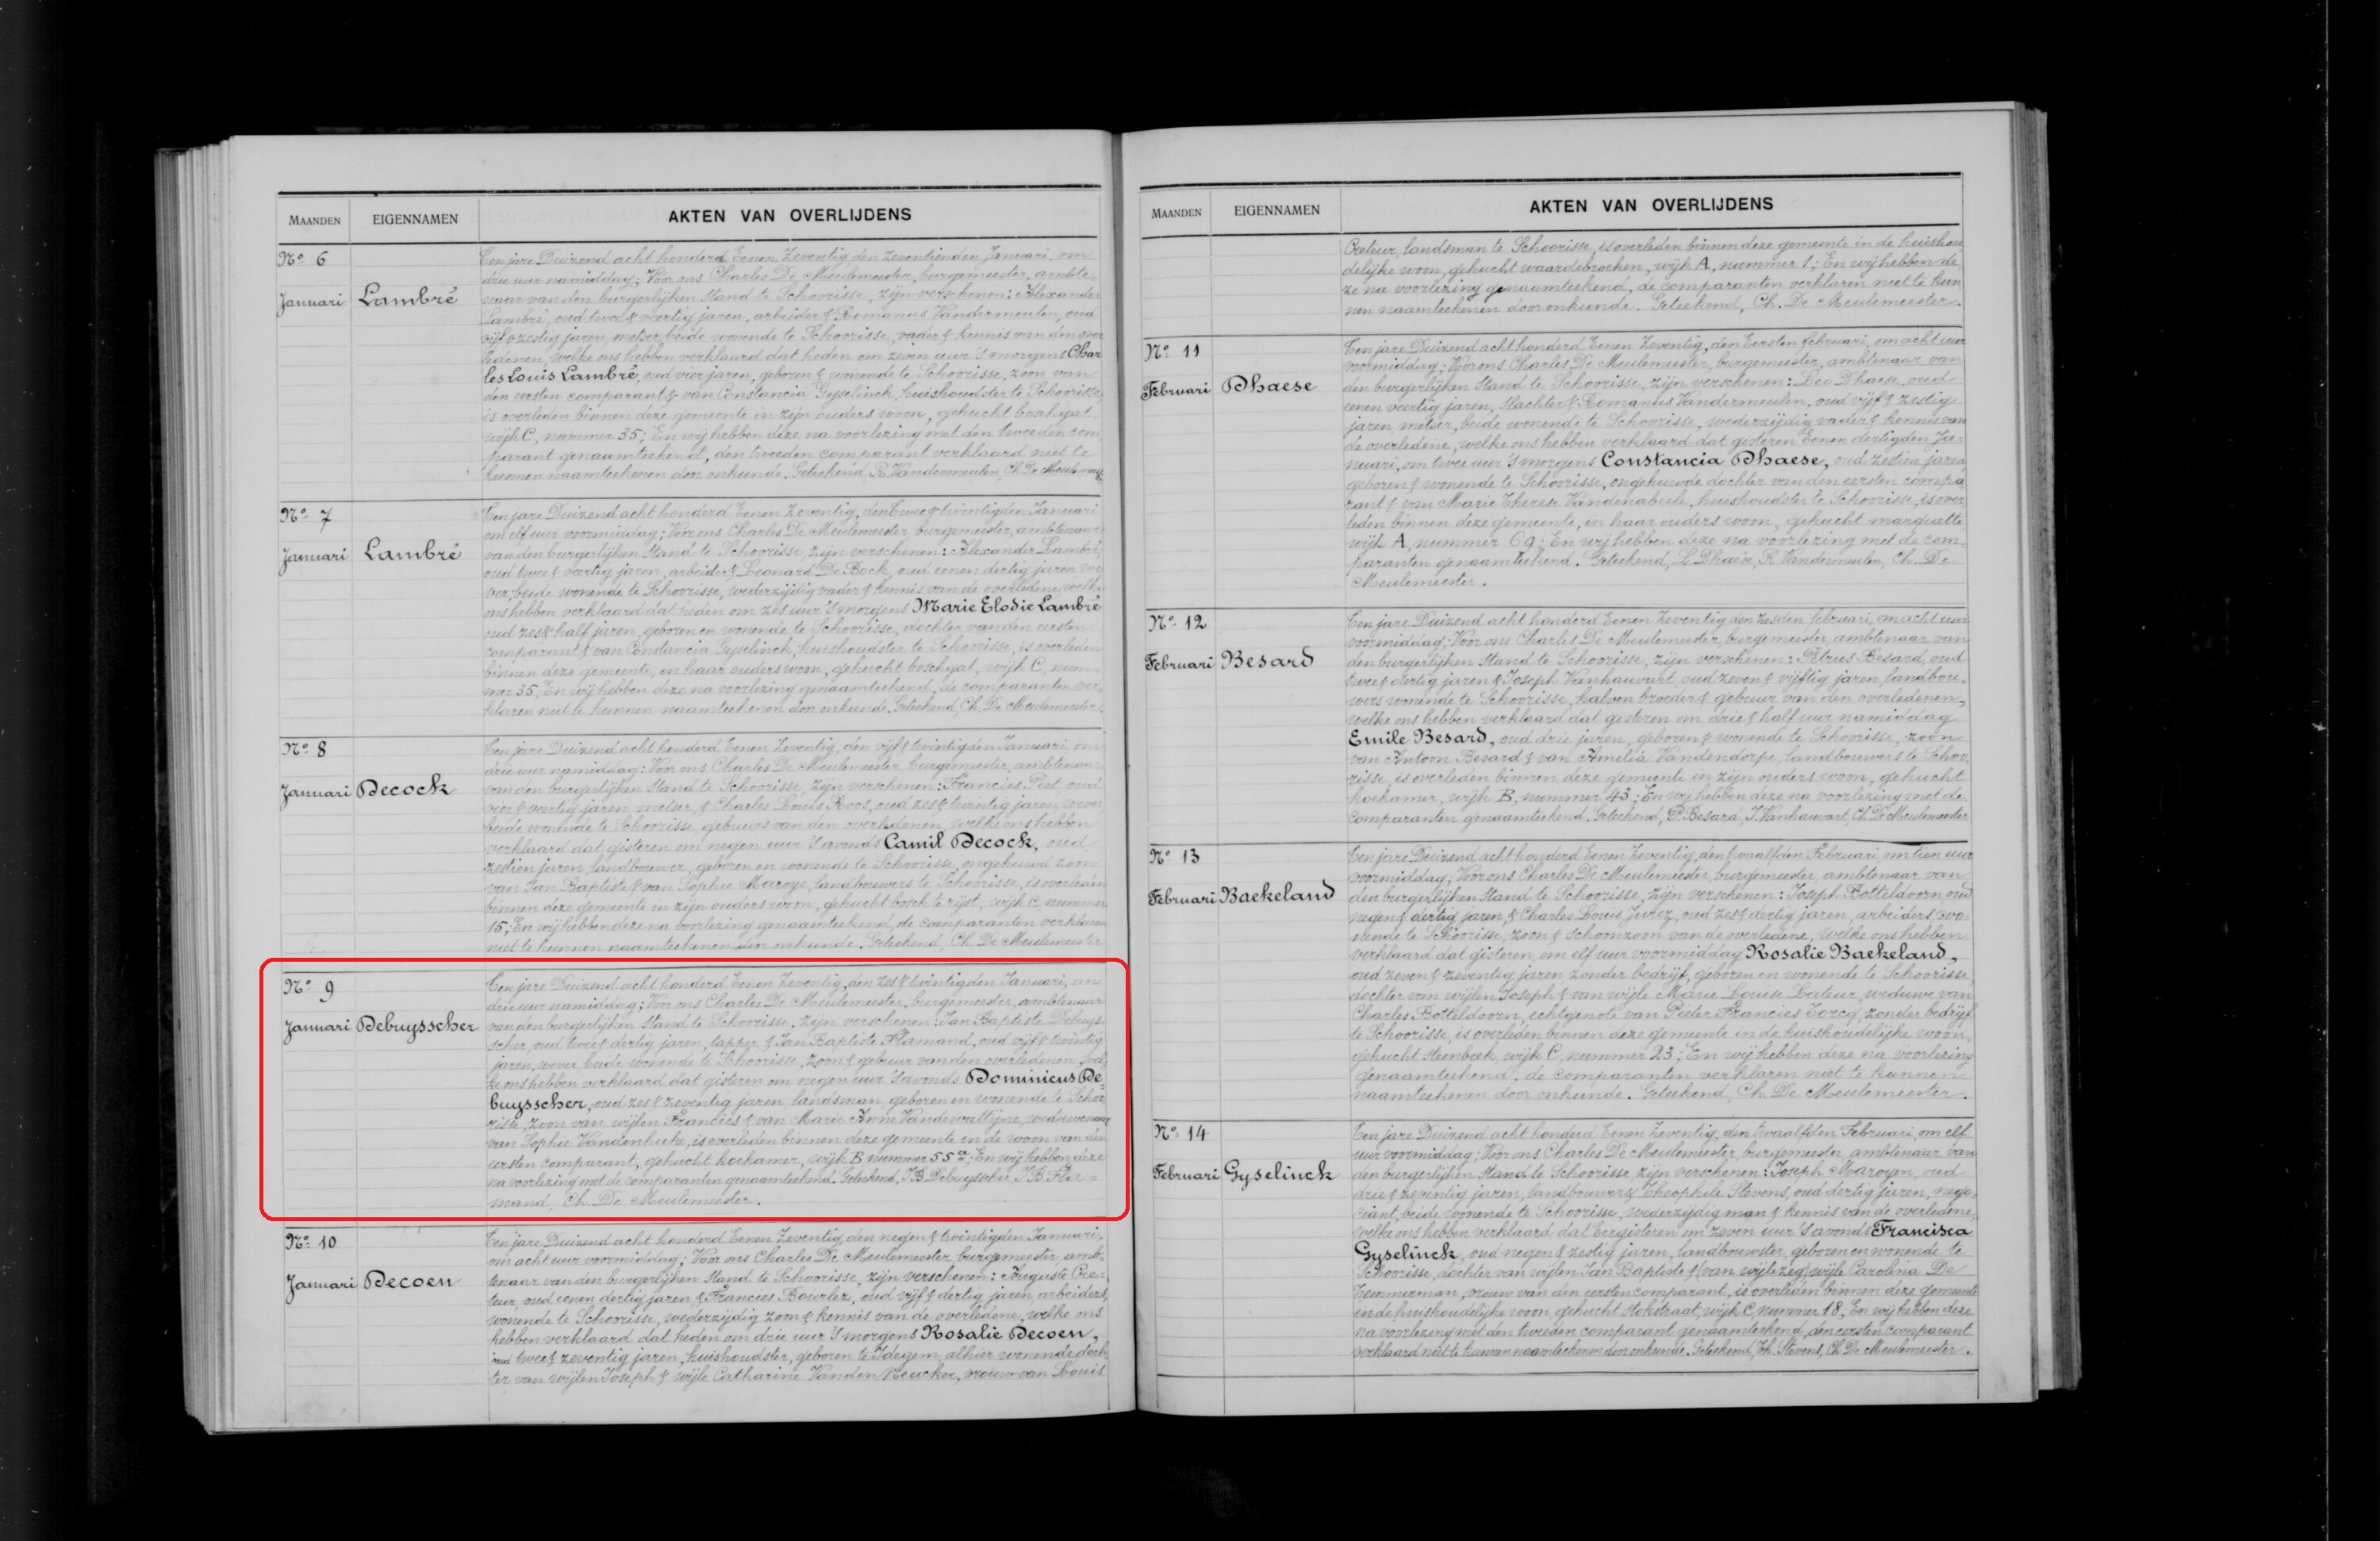 MAANDEN EIGENNAMEN AKTEN VAN OVERLIJDENS
No 6
Januari Lambré
Een jare Duizend acht honderd Eenen Zeventig, den Zeventienden Januari, om
drie uur namiddag; Voor ons Charles De Meulemeester, burgemeester, ambte-
naar van den burgerlijken stand te Schoorisse, zijn verschenen: Alexander
Lambré, oud twee & veertig jaren, arbeider & Romanus Vandermeulen, oud
vijf & zestig jaren, metser, beide wonende te Schoorisse, vader & kennis van den over
ledenen, welke ons hebben verklaard dat heden om zeven uur 's morgens Char
les Louis Lambré, oud vier jaren, geboren & wonende te Schoorisse, zoon van
den eersten comparant & van Constancia Gyselinck, huishoudster te Schorisse,
is overleden binnen deze gemeente in zijn ouders woon, gehucht boschgat,
wijk C, nummer 35; En wij hebben deze na voorlezing met den tweeden com
parant genaamteekend, den tweeden comparant verklaard niet te
kunnen naamteekenen door onkunde. Geteekend, R. Vandermeulen, Ch. De Meulemeester
No 7
Januari Lambré
Een jare Duizend acht honderd Eenen Zeventig, den Eenen & twintigden Januari
om elf uur voormiddag; Voor ons Charles De Meulemeester burgemeester, ambtenaar
van den burgerlijken stand te Schoorisse, zijn verschenen: Alexander Lambré,
oud twee & veertig jaren, arbeider & Leonard De Bock, oud eenen dertig jaren, we
ver, beide wonende te Schoorisse, wederzijdig vader & kennis van de overledene, welke
ons hebben verklaard dat heden om zes uur 's morgens Marie Elodie Lambré
oud zes & half jaren, geboren en wonende te Schoorisse, dochter van den eersten
comparant & van Constancia Gyselinck, huishoudster te Schorisse, is overleden
binnen deze gemeente, in haar ouders woon, gehucht boschgat, wijk C, num-
mer 35; En wij hebben deze na voorlezing genaamteekend, de comparanten ver-
klaren niet te kunnen naamteekenen door onkunde. Geteekend, Ch. De Meulemeester.
No 8
Januari Decock
Een jare Duizend acht honderd Eenen Zeventig, den vijf & twintigden Januari, om
drie uur namiddag: Voor ons Charles De Meulemeester, burgemeester, ambtenaar
van den burgerlijken stand te Schoorisse, zijn verschenen: Francies Piet, oud
vier & veertig jaren, metser, & Charles Louis Roos, oud zes & twintig jaren, wever,
beide wonende te Schoorisse, gebuurs van den overledenen, welke ons hebben
verklaard dat gisteren om negen uur 's avonds Camil Decock, oud
zestien jaren, landbouwer, geboren en wonende te Schoorisse, ongehuwd zoon
van Jan Baptiste & van Sophie Maroye, landbouwers te Schoorisse, is overleden
binnen deze gemeente in zijn ouders woon, gehucht bosch te rijst, wijk C nummer
15; En wij hebben deze na voorlezing genaamteekend, de comparanten verklaren
niet te kunnen naamteekenen door onkunde. Geteekend, Ch. De Meulemeester
No 9
Januari Debuysscher
Een jare Duizend acht honderd Eenen Zeventig, den zes & twintigden Januari, om
drie uur namiddag; Voor ons Charles De Meulemeester, burgemeester, ambtenaar
van den burgerlijken stand te Schoorisse, zijn verschenen: Jan Baptiste Debuys-
scher, oud twee & dertig jaren, tapper & Jan Baptiste Flamand, oud vijf & twintig
jaren, wever beide wonende te Schoorisse, zoon & gebuur van den overledenen, wel-
ke ons hebben verklaard dat gisteren om negen uur 's avonds Dominicus De-
buysscher, oud zes & zeventig jaren, landsman geboren en wonende te Schoo
risse, zoon van wijlen Francies & van Marie Anne Vandewattyne, weduwenaar
van Sophie Vandenhuke, is overleden binnen deze gemeente in de woon van den
eersten comparant, gehucht hoekamer, wijk B nummer 55a; En wij hebben deze
na voorlezing met de comparanten genaamteekend. Geteekend, J B Debuysscher, J. B. Fla-
mand, Ch. De Meulemeester.
No 10
Januari Decoen
Een jare Duizend acht honderd Eenen Zeventig, den negen & twintigden Januari,
om acht uur voormiddag; Voor ons Charles De Meulemeester, burgemeester, amb-
tenaar van den burgerlijken stand te Schoorisse, zijn verschenen: Auguste Cre-
teur, oud eenen dertig jaren & Francies Bourlez, oud vijf & dertig jaren, arbeiders,
wonende te Schoorisse, wederzijdig zoon & kennis van de overledene, welke ons
hebben verklaard dat heden om drie uur 's morgens Rosalie Decoen,
oud twee & zeventig jaren, huishoudster, geboren te Idegem, alhier wonende doch
ter van wijlen Joseph & wijle Catharine Vanden Neucker, vrouw van Louis
MAANDEN EIGENNAMEN AKTEN VAN OVERLIJDENS
Creteur, landsman te Schoorisse, is overleden binnen deze gemeente in de huishou
delijke woon, gehucht waardebroeken, wijk A, nummer 1; En wij hebben de
ze na voorlezing genaamteekend, de comparanten verklaren niet te kun
nen naamteekenen door onkunde. Geteekend, Ch. De Meulemeester.
No 11
Februari Dhaese
Een jare Duizend acht honderd Eenen Zeventig, den Eersten februari, om acht uur
voormiddag; Voor ons Charles De Meulemeester, burgemeester, ambtenaar van
den burgerlijken stand te Schoorisse, zijn verschenen: Leo Dhaese, oud
eenen veertig jaren, slachter & Romanus Vandermeulen, oud vijf & zestig
jaren, metser, beide wonende te Schoorisse, wederzijdig vader & kennis van
de overledene, welke ons hebben verklaard dat gisteren Eenen dertigden Ja-
nuari, om twee uur 's morgens Constancia Dhaese, oud zestien jaren,
geboren & wonende te Schoorisse, ongehuwde dochter van den eersten compa
rant & van Marie Therese Vandenabeele, huishoudster te Schoorisse, is over
leden binnen deze gemeente, in haar ouders woon, gehucht marquette
wijk A, nummer 69: En wij hebben deze na voorlezing met de com-
paranten genaamteekend. Geteekend, L. Dhaese, R. Vandermeulen, Ch. De
Meulemeester.
No 12
Februari Besard
Een jare Duizend acht honderd Eenen Zeventig den zesden februari, om acht uur
voormiddag; Voor ons Charles De Meulemeester, burgemeester, ambtenaar van
den burgerlijken stand te Schoorisse, zijn verschenen: Petrus Besard, oud
twee & dertig jaren & Joseph Vanhauwart, oud zeven & vijftig jaren, landbou-
wers wonende te Schoorisse, halven broeder & gebuur van den overledenen,
welke ons hebben verklaard dat gisteren om drie & half uur namiddag
Emile Besard, oud drie jaren, geboren & wonende te Schoorisse, zoon
van Antoon Besard & van Amelia Vandendorpe, landbouwers te Schoo
risse, is overleden binnen deze gemeente in zijn ouders woon, gehucht
hoekamer, wijk B, nummer 43: En wij hebben deze na voorlezing met de
comparanten genaamteekend. Geteekend, P. Besard, J. Vanhauwart, Ch. De Meulemeester
No 13
Februari Baekeland
Een jare Duizend acht honderd Eenen Zeventig, den twaalfden Februari, om tien uur
voormiddag; Voor ons Charles De Meulemeester, burgemeester, ambtenaar van
den burgerlijken stand te Schoorisse, zijn verschenen: Joseph Botteldoorn, oud
negen & dertig jaren, & Charles Louis Jurez, oud zes & dertig jaren, arbeiders, wo-
nende te Schoorisse, zoon & schoonzoon van de overledene, welke ons hebben
verklaard dat gisteren, om elf uur voormiddag Rosalie Baekeland,
oud zeven & zeventig jaren zonder bedrijf, geboren en wonende te Schoorisse,
dochter van wijlen Joseph & van wijle Marie Louise Lateur, weduwe van
Charles Botteldoorn, echtgenote van Pieter Francies Torcq, zonder bedrijf
te Schoorisse, is overleden binnen deze gemeente in de huishoudelijke woon,
gehucht steenbeek, wijk C, nummer 23; En wij hebben deze na voorlezing
genaamteekend, de comparanten verklaren niet te kunnen
naamteekenen door onkunde. Geteekend, Ch. De Meulemeester.
No 14
Februari Gyselinck
Een jare Duizend acht honderd Eenen Zeventig, den twaalfden Februari, om elf
uur voormiddag; Voor ons Charles De Meulemeester burgemeester, ambtenaar van
den burgerlijken stand te Schoorisse zijn verschenen: Joseph Maroyen, oud
drie & zeventig jaren, landbouwer & Theophile Stevens, oud dertig jaren, nego-
ciant, beide wonende te Schoorisse, wederzijdig man & kennis van de overledene,
welke ons hebben verklaard dat Eergisteren om zeven uur 's avonds Francisca
Gyselinck, oud negen & zestig jaren, landbouwster, geboren en wonende te
Schoorisse, dochter van wijlen Jan Baptiste & (van wijle zeg) wijle Carolina De
Temmerman, vrouw van den eersten comparant, is overleden binnen deze gemeente
in de huishoudelijke woon, gehucht stokstraat, wijk C nummer 18, En wij hebben deze
na voorlezing met den tweeden comparant genaamteekend, den eersten comparant
verklaard niet te kunnen naamteekenen door onkunde. Geteekend, Th. Stevens, Ch. De Meulemeester.